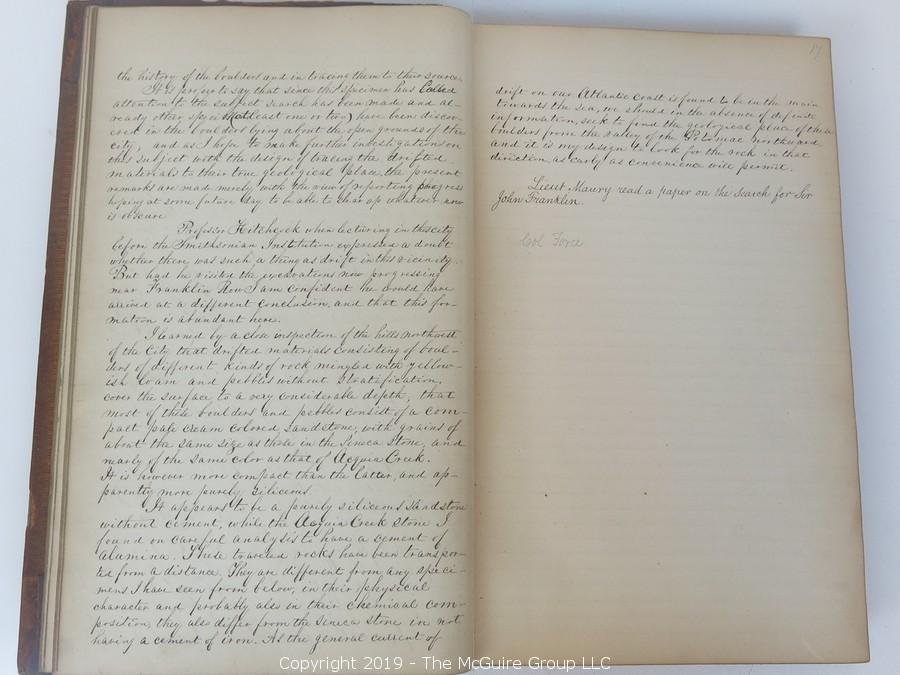 the history of the boulders and in tracing them to their source
It is proper to say that since this specimen has called
attention to the subject search has been made and al-
ready other speci (at least one or two) have been discov-
ered in the boulders lying about the open grounds of the
city, and as I hope to make further investigations on
this subject with the design of tracing the drifted
materials to their true geological place, the present
remarks are made merely with the view of reporting progress
hoping at some future day to be able to clear up whatever now
is obscure
Professor Hitchcock when lecturing in this city
before the Smithsonian Institution expressed a doubt
whether there was such a thing as drift in this vicinity.
But had he visited the excavations now progressing
near Franklin Row I am confident he would have
arrived at a different conclusion, and that this for-
mation is abundant here.
I learned by a close inspection of the hills northwest
of the City that drifted materials consisting of boul-
ders of different kinds of rock mingled with yellow-
ish loam and pebbles without stratification,
cover the surface to a very considerable depth; that
most of these boulders and pebbles consist of a com-
pact pale cream colored sandstone, with grains of
about the same size as those in the Seneca Stone, and
nearly of the same color as that of Acquia Creek.
It is however more compact than the latter, and ap-
parently more purely silicous
It appears to be a purely silicous sandstone
without cement, while the Acquia Creek stone I
found on careful analysis to have a cement of
alumina. These traveled rocks have been transpor-
ted from a distance. They are different from any speci-
mens I have seen from below, in their physical
character and probably also in their chemical com-
position, they also differ from the Seneca Stone in not
having a cement of iron. As the general current of
17
drift on our Atlantic coast is found to be in the main
towards the sea, we should in the absence of definite
information, seek to find the geological place of these
boulders from the valley of the Potomac northward
and it is my design to look for the rock in that
direction as early as convenience will permit.
Lieut. Maury read a paper on the search for Sir
John Franklin.
Col Force
Copyright 2019 - The McGuire Group LLC